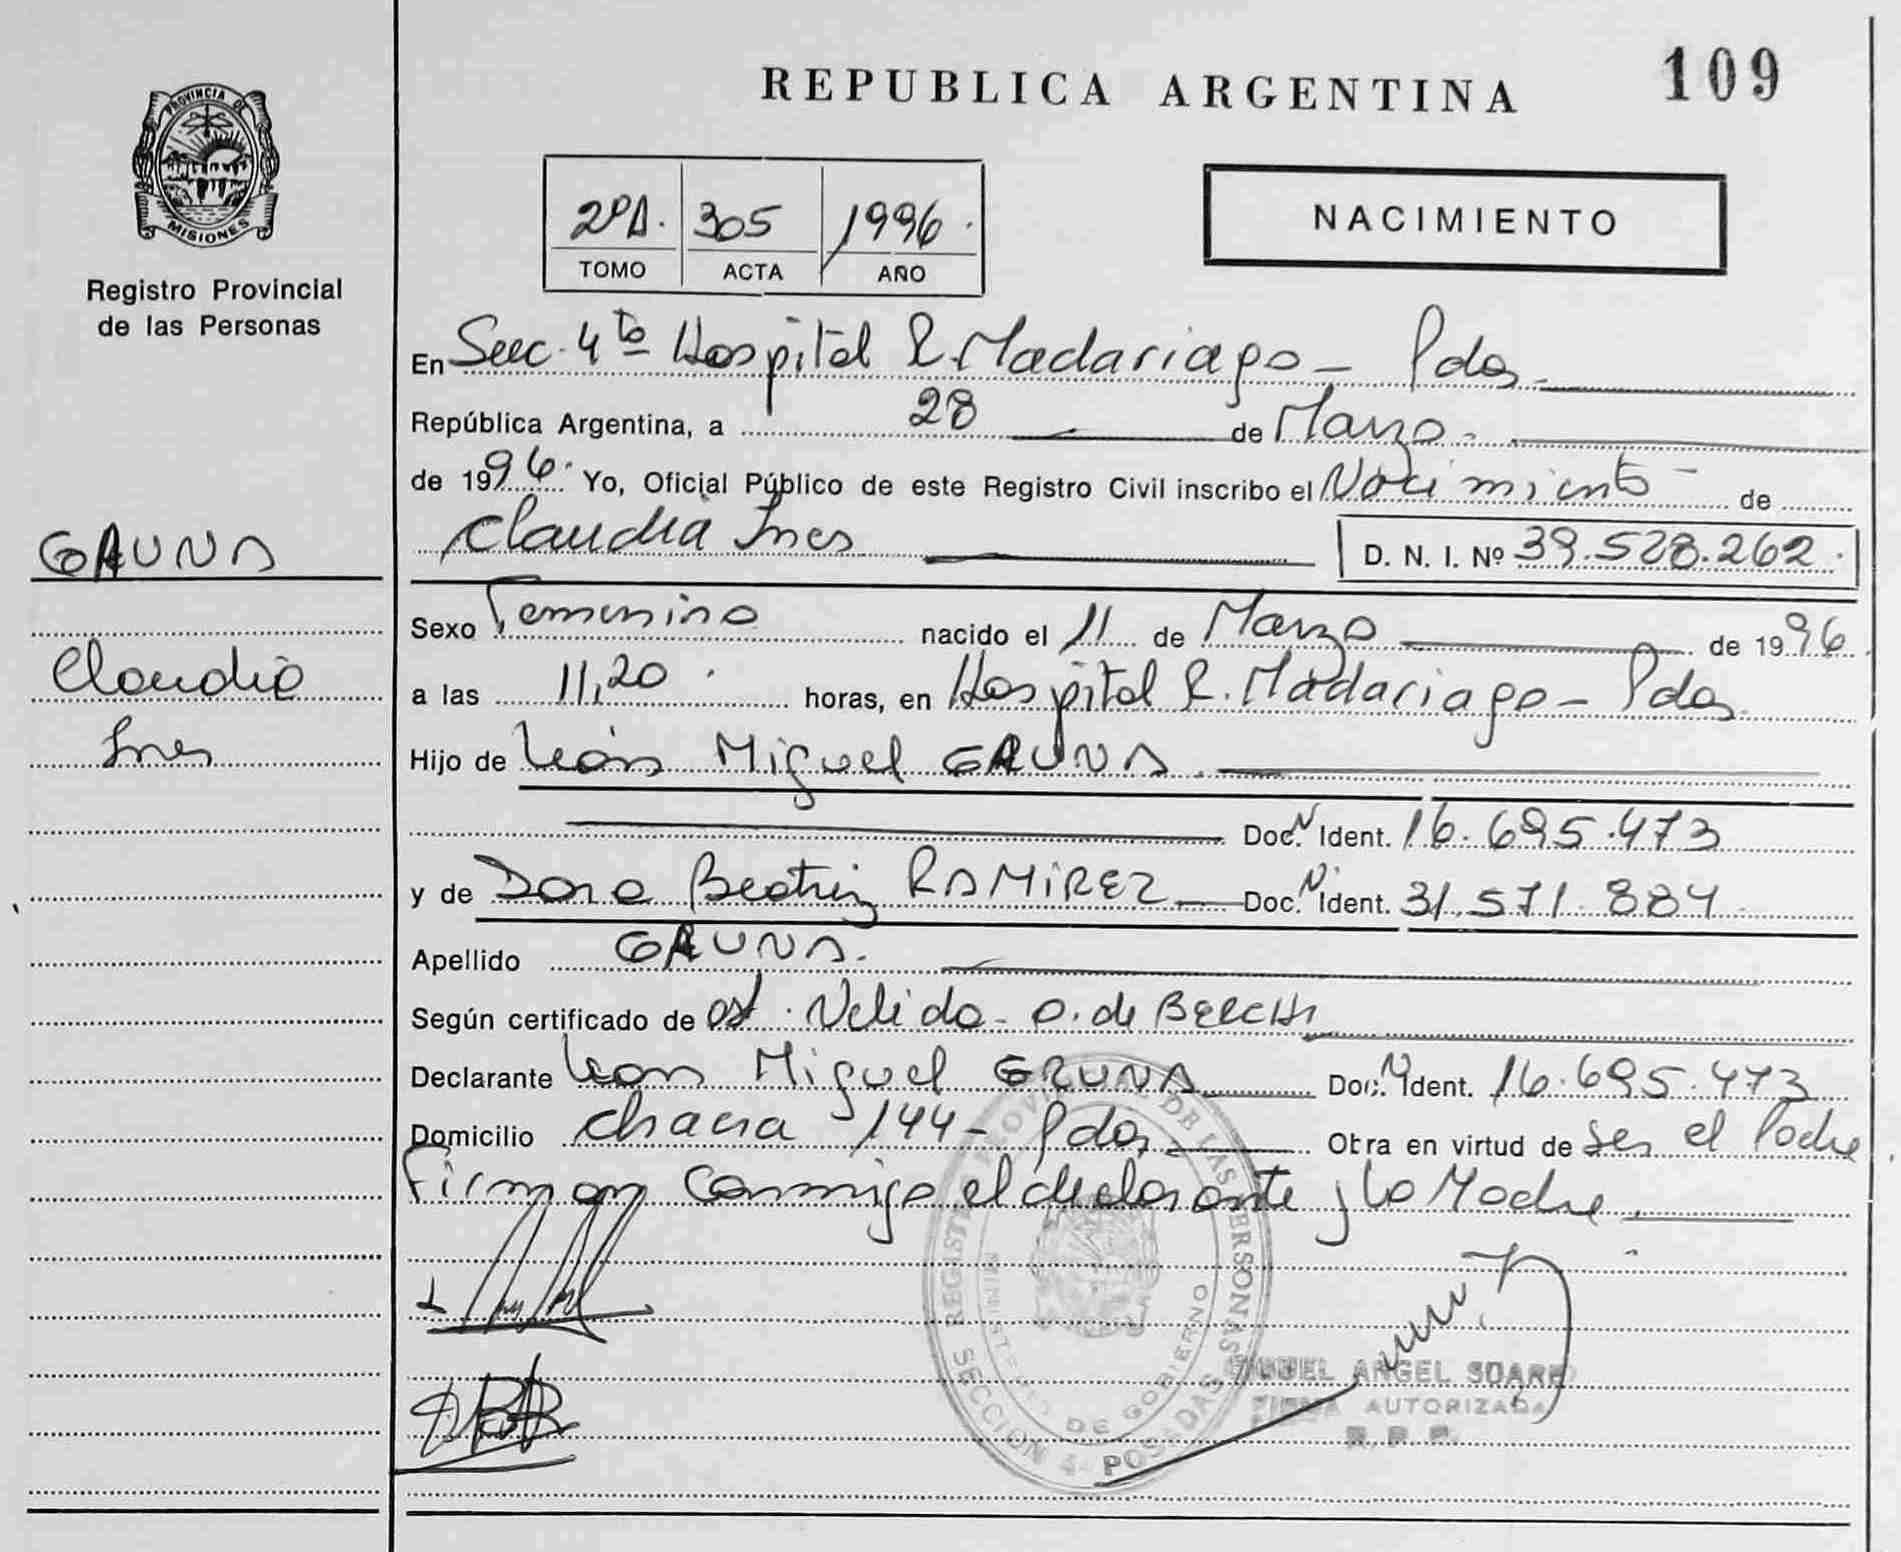 109
REPUBLICA ARGENTINA
PROVINCIA DE
MISIONES
Registro Provincial
de las Personas
2ºA. 305 1996.
TOMO ACTA AÑO
NACIMIENTO
En Secc. 4ta Hospital R. Madariaga - Pdas
República Argentina, a 28 de Marzo.
de 1996. Yo, Oficial Público de este Registro Civil inscribo el Nacimiento de
Claudia Ines D. N. I. Nº 39.528.262.
GAUNA
Claudia
Ines
Sexo Femenino nacido el 11 de Marzo de 1996
a las 11,20. horas, en Hospital R. Madariaga - Pdas
Hijo de León Miguel GAUNA
Doc. N Ident. 16.695.473
y de Dora Beatriz RAMIREZ Doc. N. Ident. 31.571.884
Apellido GAUNA.
Según certificado de ost. Nelida O. de
Declarante Leon Miguel GAUNA Doc. N Ident. 16.695.473
Domicilio chacra 144 - Pdas Obra en virtud de ser el Padre
Firman conmigo el declarante y la Madre.
REGISTRO PROVINCIAL DE LAS PERSONAS
MINISTERIO DE GOBIERNO
SECCION 4- POSADAS
MIGUEL ANGEL SOARE
FIRMA AUTORIZADA
R. P. P.